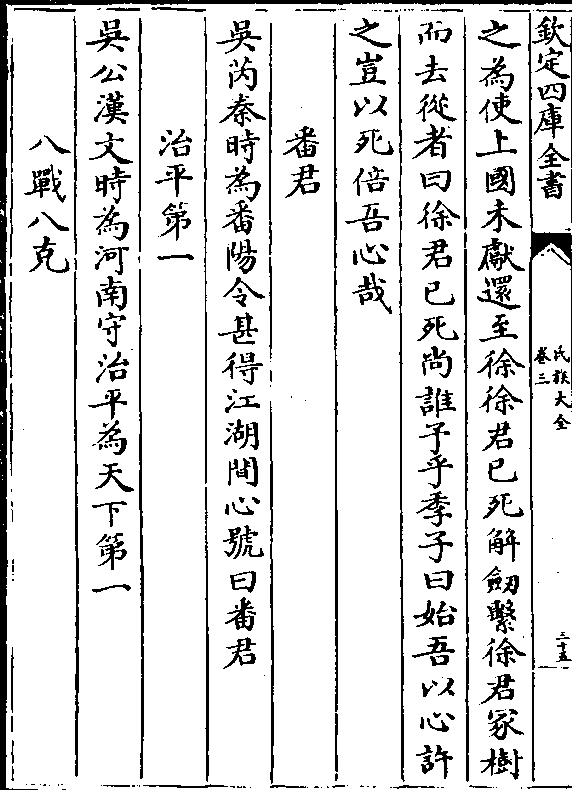 欽定四庫全書
氏族大全
卷三
三十五
之為使上國未獻還至徐徐君已死解劔繫徐君冢樹
而去從者曰徐君已死尚誰予乎季子曰始吾以心許
之豈以死倍吾心哉
番君
吳芮秦時為番陽令甚得江湖間心號曰番君
治平第一
吳公漢文時為河南守治平為天下第一
八戰八克